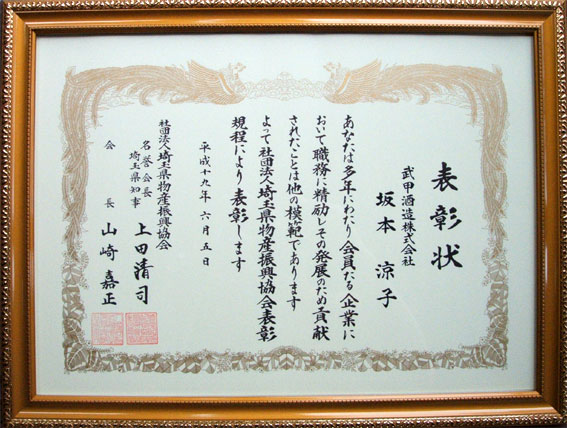 表彰状
武甲酒造株式会社
坂本涼子
あなたは多年にわたり会員たる企業に
おいて職務に精励しその発展のため貢献
されたことは他の模範であります
よって社団法人埼玉県物産振興協会表彰
規程により表彰します
平成十九年六月五日
社団法人埼玉県物産振興協会
名誉会長
埼玉県知事
上田清司
会長
山崎嘉正